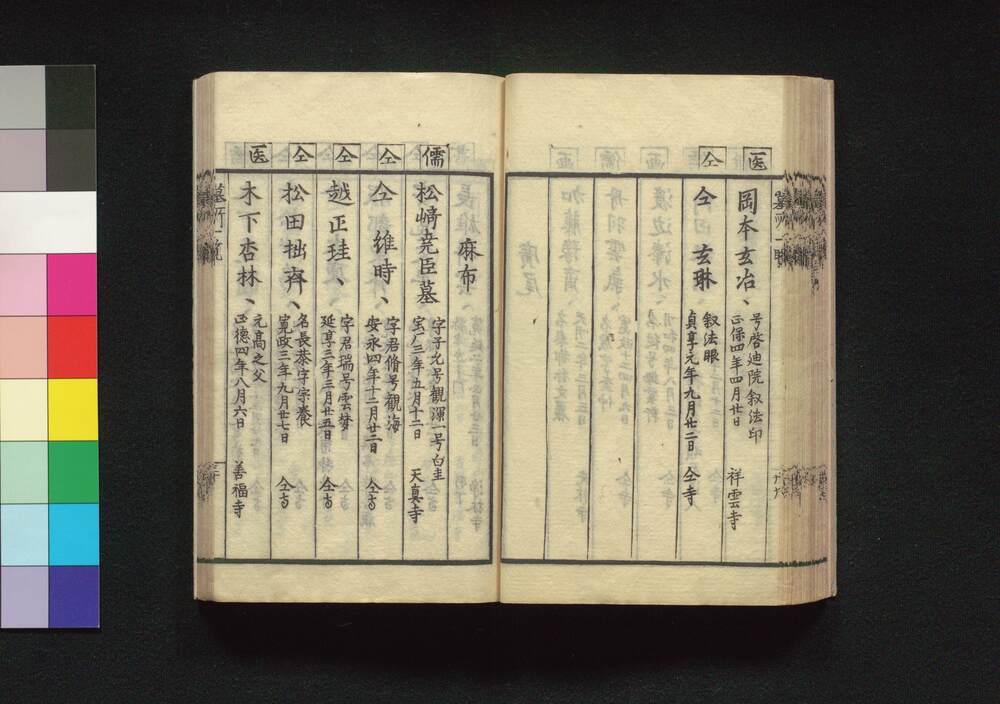 医
岡本玄冶、
号啓迪院叙法印
正保四年四月廿日
祥雲寺
仝
仝 玄琳
叙法眼
貞享元年九月廿二日
仝寺
麻布
儒
松﨑尭臣墓
字子允号観瀾一号白圭
宝厂三年五月十二日
天真寺
仝
仝 維時、
字君脩号観海
安永四年十二月廿二日
仝寺
仝
越正珪、
字君瑞号雲夢
延享三年三月廿五日
仝寺
仝
松田拙斉、
名長恭字宗養
寛政三年九月廿七日
仝寺
医
木下杏林、
元高之父
正徳四年八月六日
善福寺